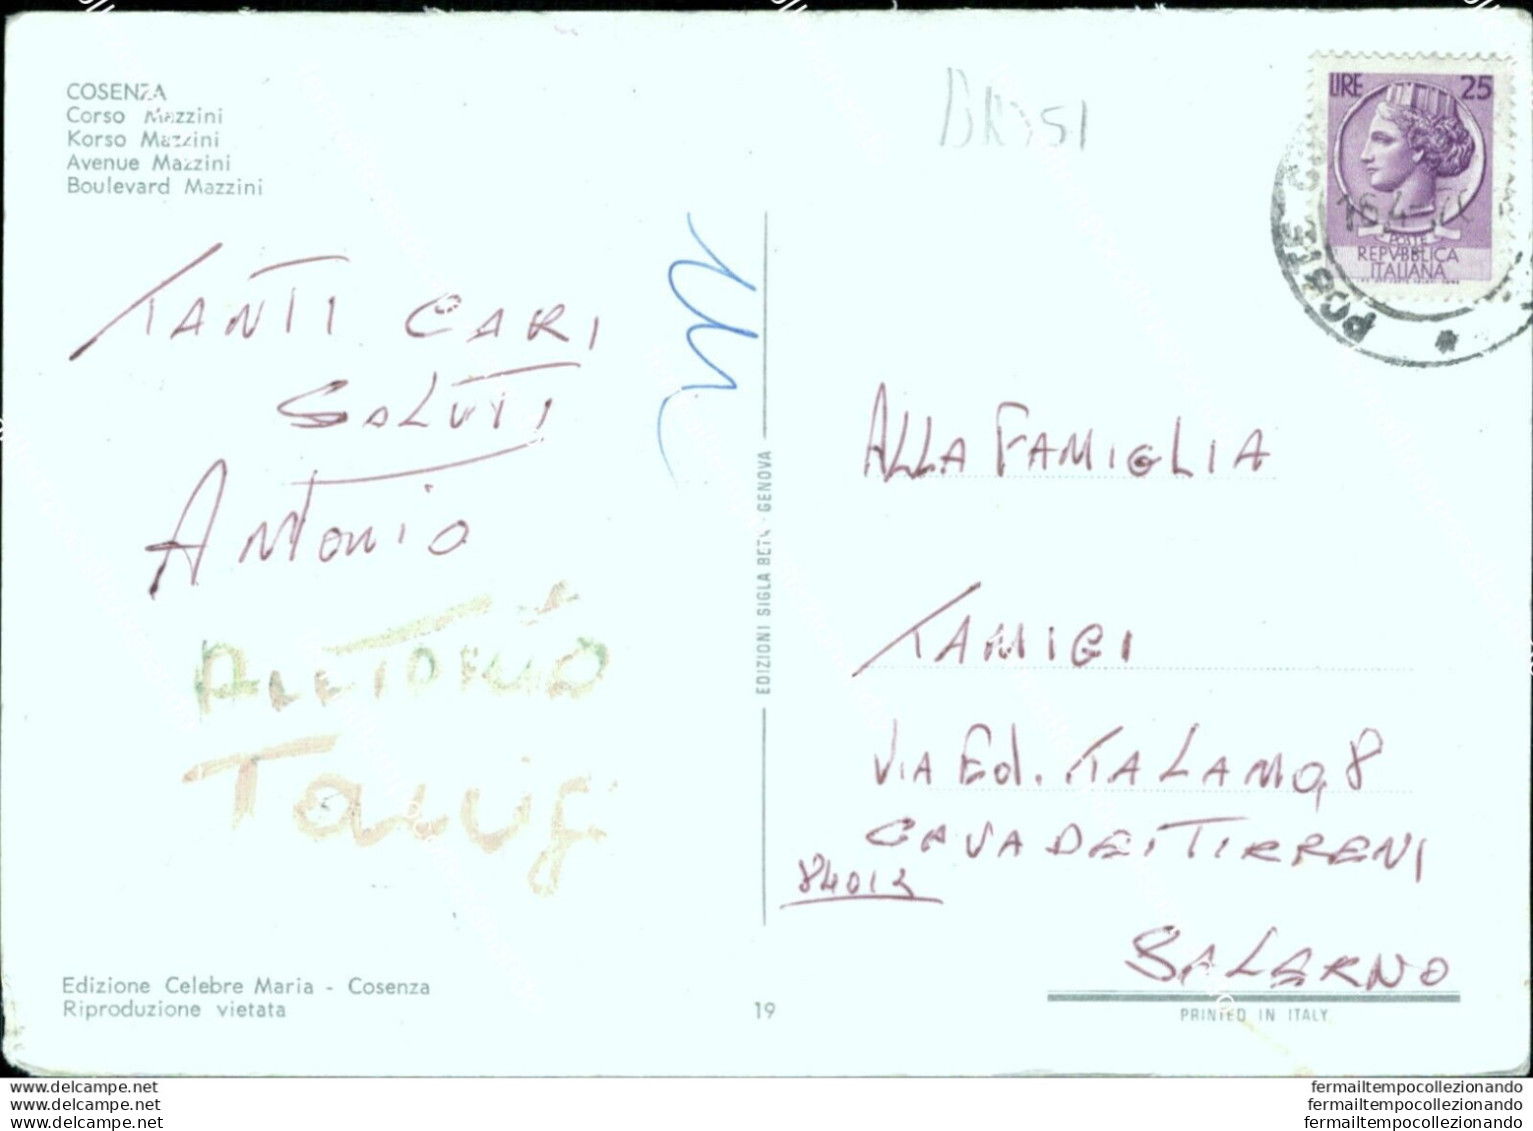 COSENZA
Corso Mazzini
Korso Mazzini
Avenue Mazzini
Boulevard Mazzini
TANTI CARI
SALUTI
Antonio
Antonio
Edizione Celebre Maria - Cosenza
Riproduzione vietata
EDIZIONI SIGLA BETA - GENOVA
19
LIRE 25
POSTE
REPVBBLICA
ITALIANA
POSTE
ALLA FAMIGLIA
TAMIGI
VIA Ed. TALAMO, 8
CAVA DEI TIRRENI
84013
SALERNO
PRINTED IN ITALY
www.delcampe.net
www.delcampe.net
www.delcampe.net
fermailtempocollezionando
fermailtempocollezionando
fermailtempocollezionando